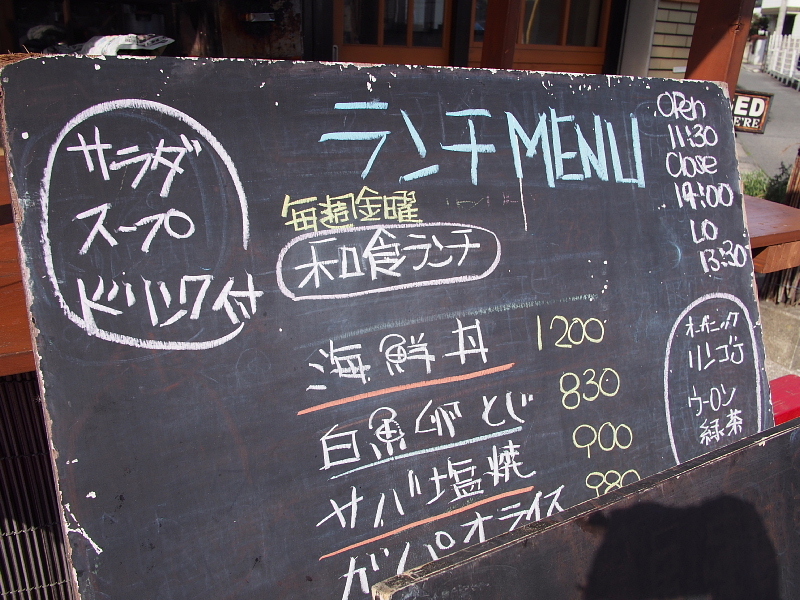 サラダ
スープ
ドリンク付
ランチMENU
毎週金曜
和食ランチ
OPEn
11:30
Close
14:00
LO
13:30
海鮮丼 1200
白魚卵とじ 830
サバ塩焼 900
ガパオライス 980
オーガニック
リンゴJ
ウーロン
緑茶
ED
RE